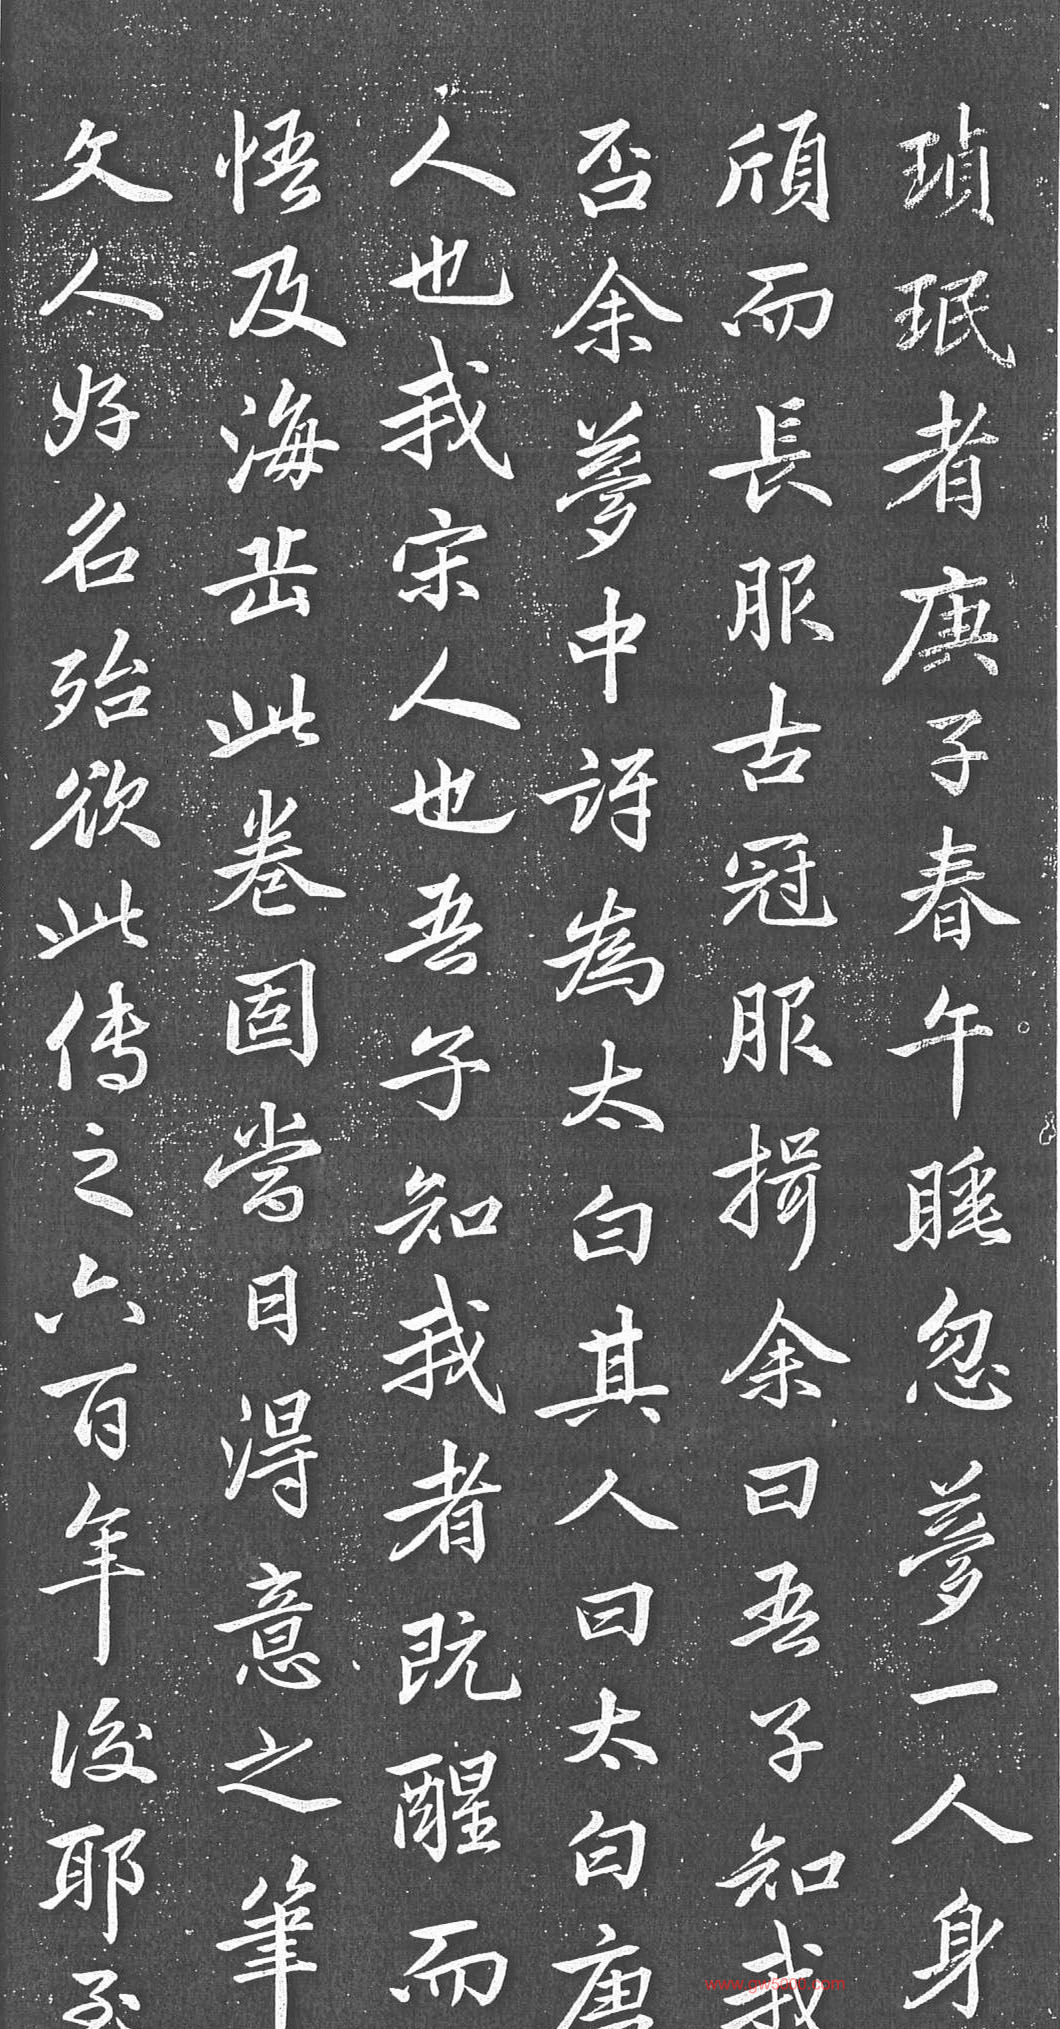 瑱珉者庚子春午睡忽夢一人身
頎而長服古冠服揖余曰吾子知我
否余夢中訝為太白其人曰太白唐
人也我宋人也吾子知我者既醒而
悟及海岳此卷固當目得意之筆
文人好名殆欲此傳之六百年後耶
www.gw5000.com